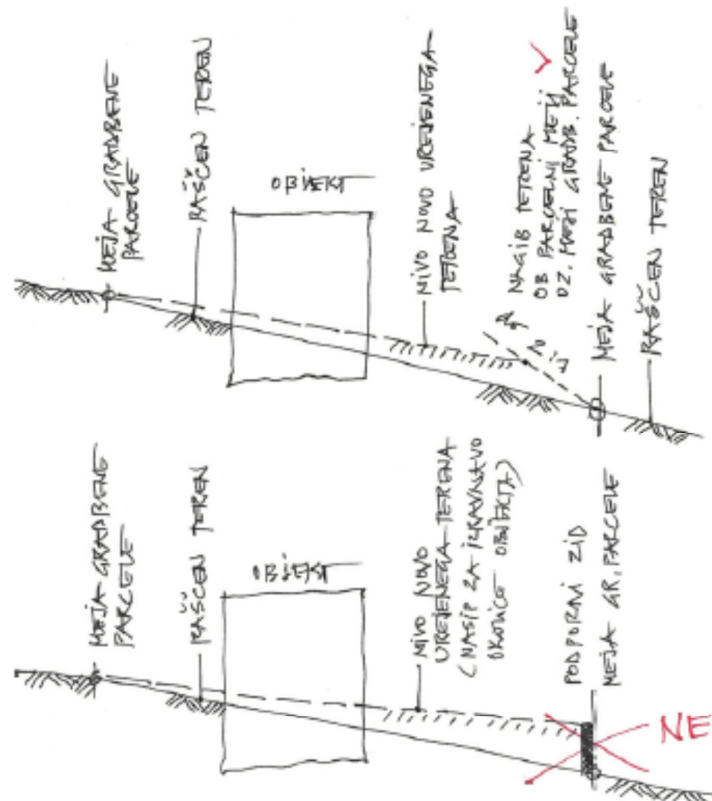 MEJA GRADBENE
PARCELE
RAŠČEN TEREN
OBJEKT
NIVO NOVO UREJENEGA
TERENA
NAGIB TERENA
OB PARCELNI MEJI
OZ. MEJI GRADB. PARCELE
MEJA GRADBENE PARCELE
RAŠČEN TEREN
MEJA GRADBENE
PARCELE
RAŠČEN TEREN
OBJEKT
NIVO NOVO
UREJENEGA TERENA
(NASIP ZA IZRAVNAVO
OKOLICE OBJEKTA)
PODPORNI ZID
MEJA GR. PARCELE
NE